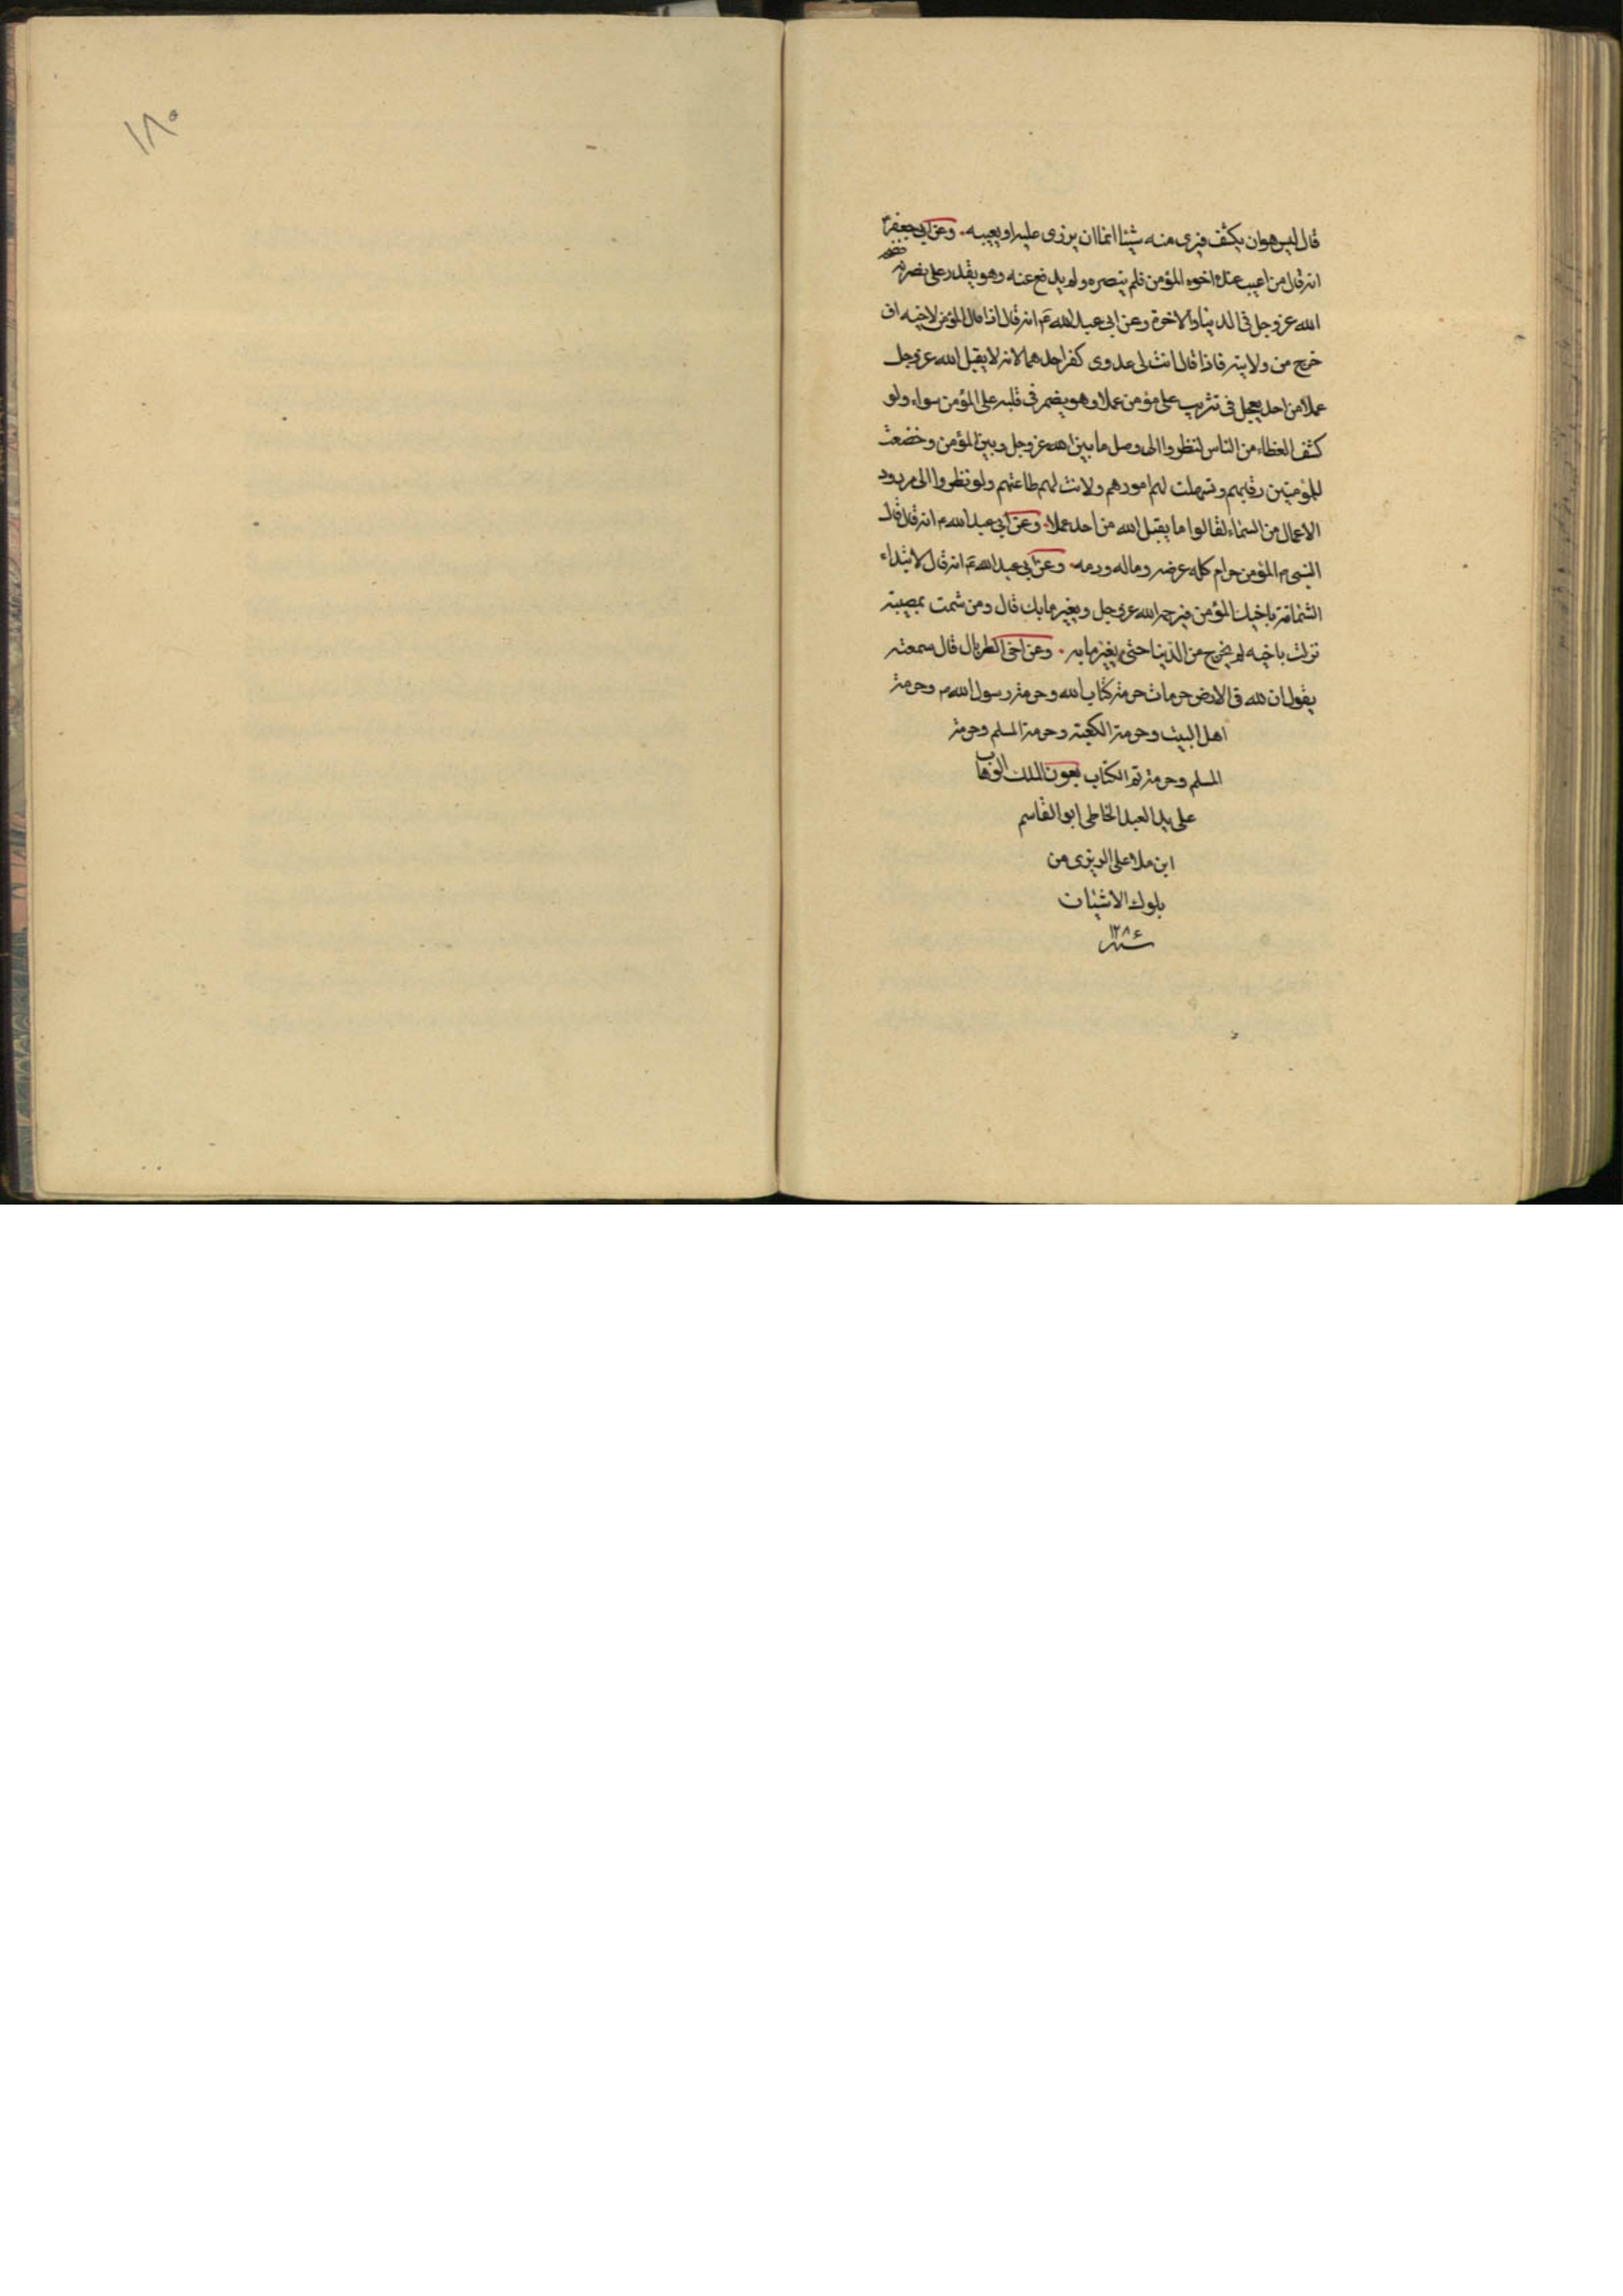 ١٨٠
قال ليس هو ان يكشف فيرى منه شيئا انما ان يزرى عليه او يعيبه. وعن ابى جعفر ع
انه قال من اعيب عنده اخوه المؤمن فلم ينصره ولم يدفع عنه وهو يقدر على نصرته
الله عز وجل فى الدنيا والاخرة وعن ابى عبد الله ع انه قال اذا قال المؤمن لاخيه اف
خرج من ولايته فاذا قال انت لى عدوى كفر احدهما لانه لا يقبل الله عز وجل
عملا من احد يعجل فى تثريب على مؤمن عملا وهو يضمر فى قلبه على المؤمن سواء ولو
كشف الغطاء من الناس لنظروا الى وصل ما بين الله عز وجل وبين المؤمن وخضعت
للمؤمنين رقابهم وتسهلت لهم امورهم ولانت لهم طاعتهم ولو نظروا الى مردود
الاعمال من السماء لقالوا ما يقبل الله من احد عملا. وعن ابى عبد الله ع انه قال قال
النبى ص المؤمن حرام كله عرضه وماله ودمه. وعن ابى عبد الله ع انه قال لا تبداء
الشماتة باخيك المؤمن فيرحمه الله عز وجل ويغير ما بك قال ومن شمت بمصيبة
نزلت باخيه لم يخرج من الدنيا حتى يغير ما به. وعن اخى الطربال قال سمعته
يقول ان لله فى الارض حرمات حرمة كتاب الله وحرمة رسول الله ص وحرمة
اهل البيت وحرمة الكعبة وحرمة المسلم وحرمة
المسلم وحرمة تم الكتاب بعون الملك الوهاب
على يد العبد الخاطى ابو القاسم
ابن ملا على من
بلوك
سنة ١٢٨٤